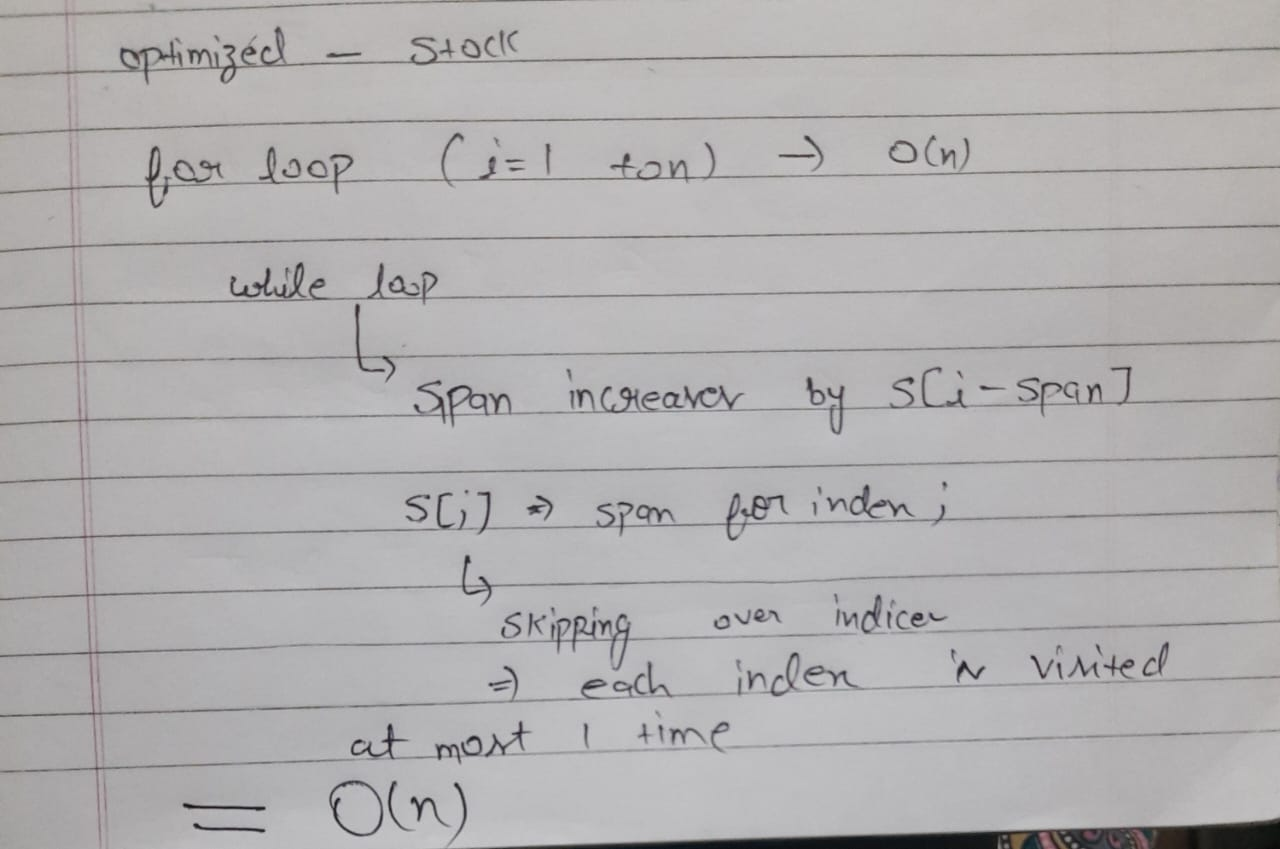 optimized - Stock
for loop (i=1 to n) → O(n)
while loop
↳ Span increases by S[i-span]
S[i] ⇒ span for index i
↳ skipping over indices
⇒ each index is visited
at most 1 time
= O(n)